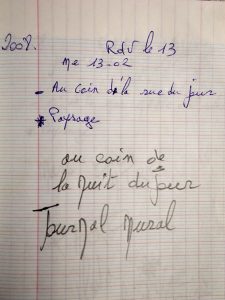 2008.
Rdv le 13
me 13-02
- Au coin d'la rue du jour
* Paysage
au coin de
la nuit du jour
Journal mural